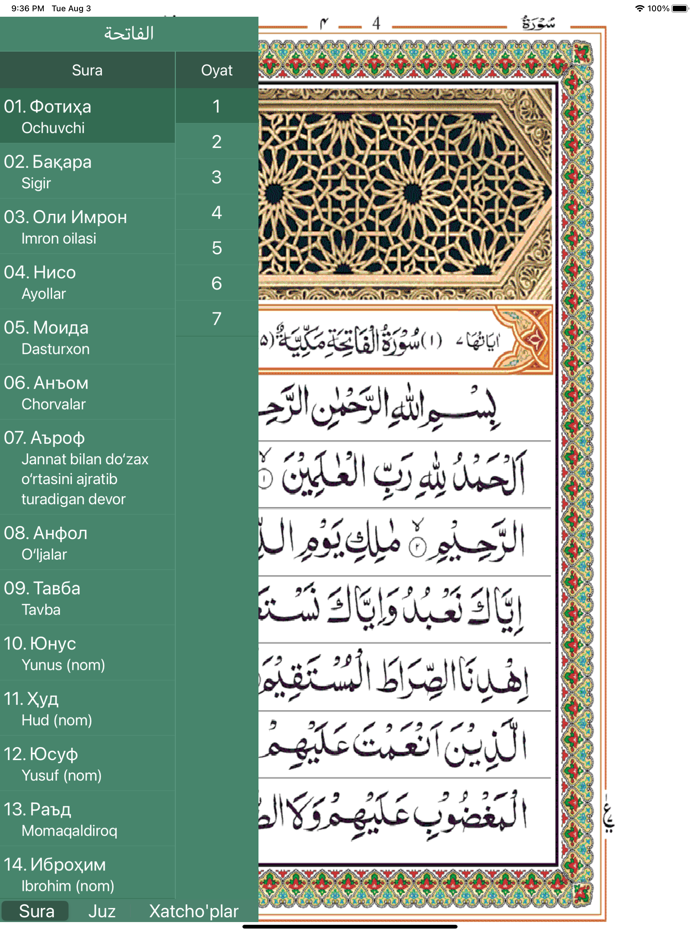 9:36 PM Tue Aug 3
100%
الفاتحة
Sura
Oyat
01. Фотиҳа
Ochuvchi
02. Бақара
Sigir
03. Оли Имрон
Imron oilasi
04. Нисо
Ayollar
05. Моида
Dasturxon
06. Анъом
Chorvalar
07. Аъроф
Jannat bilan do‘zax
o‘rtasini ajratib
turadigan devor
08. Анфол
O‘ljalar
09. Тавба
Tavba
10. Юнус
Yunus (nom)
11. Ҳуд
Hud (nom)
12. Юсуф
Yusuf (nom)
13. Раъд
Momaqaldiroq
14. Иброҳим
Ibrohim (nom)
1
2
3
4
5
6
7
Sura
Juz
Xatcho'plar
سُوْرَةُ
4
۴
اٰیَاتُهَا ۷ (۱) سُوْرَةُ الْفَاتِحَةِ مَكِّيَّةٌ (۵
بِسْمِ اللهِ الرَّحْمٰنِ
اَلْحَمْدُ لِلّٰهِ رَبِّ الْعٰلَمِيْنَ ۱
الرَّحِيْمِ ۲ مٰلِكِ يَوْمِ
اِيَّاكَ نَعْبُدُ وَاِيَّاكَ
اِهْدِنَا الصِّرَاطَ الْمُسْتَقِيْمَ
الَّذِيْنَ اَنْعَمْتَ عَلَيْهِمْ
الْمَغْضُوْبِ عَلَيْهِمْ وَلَا